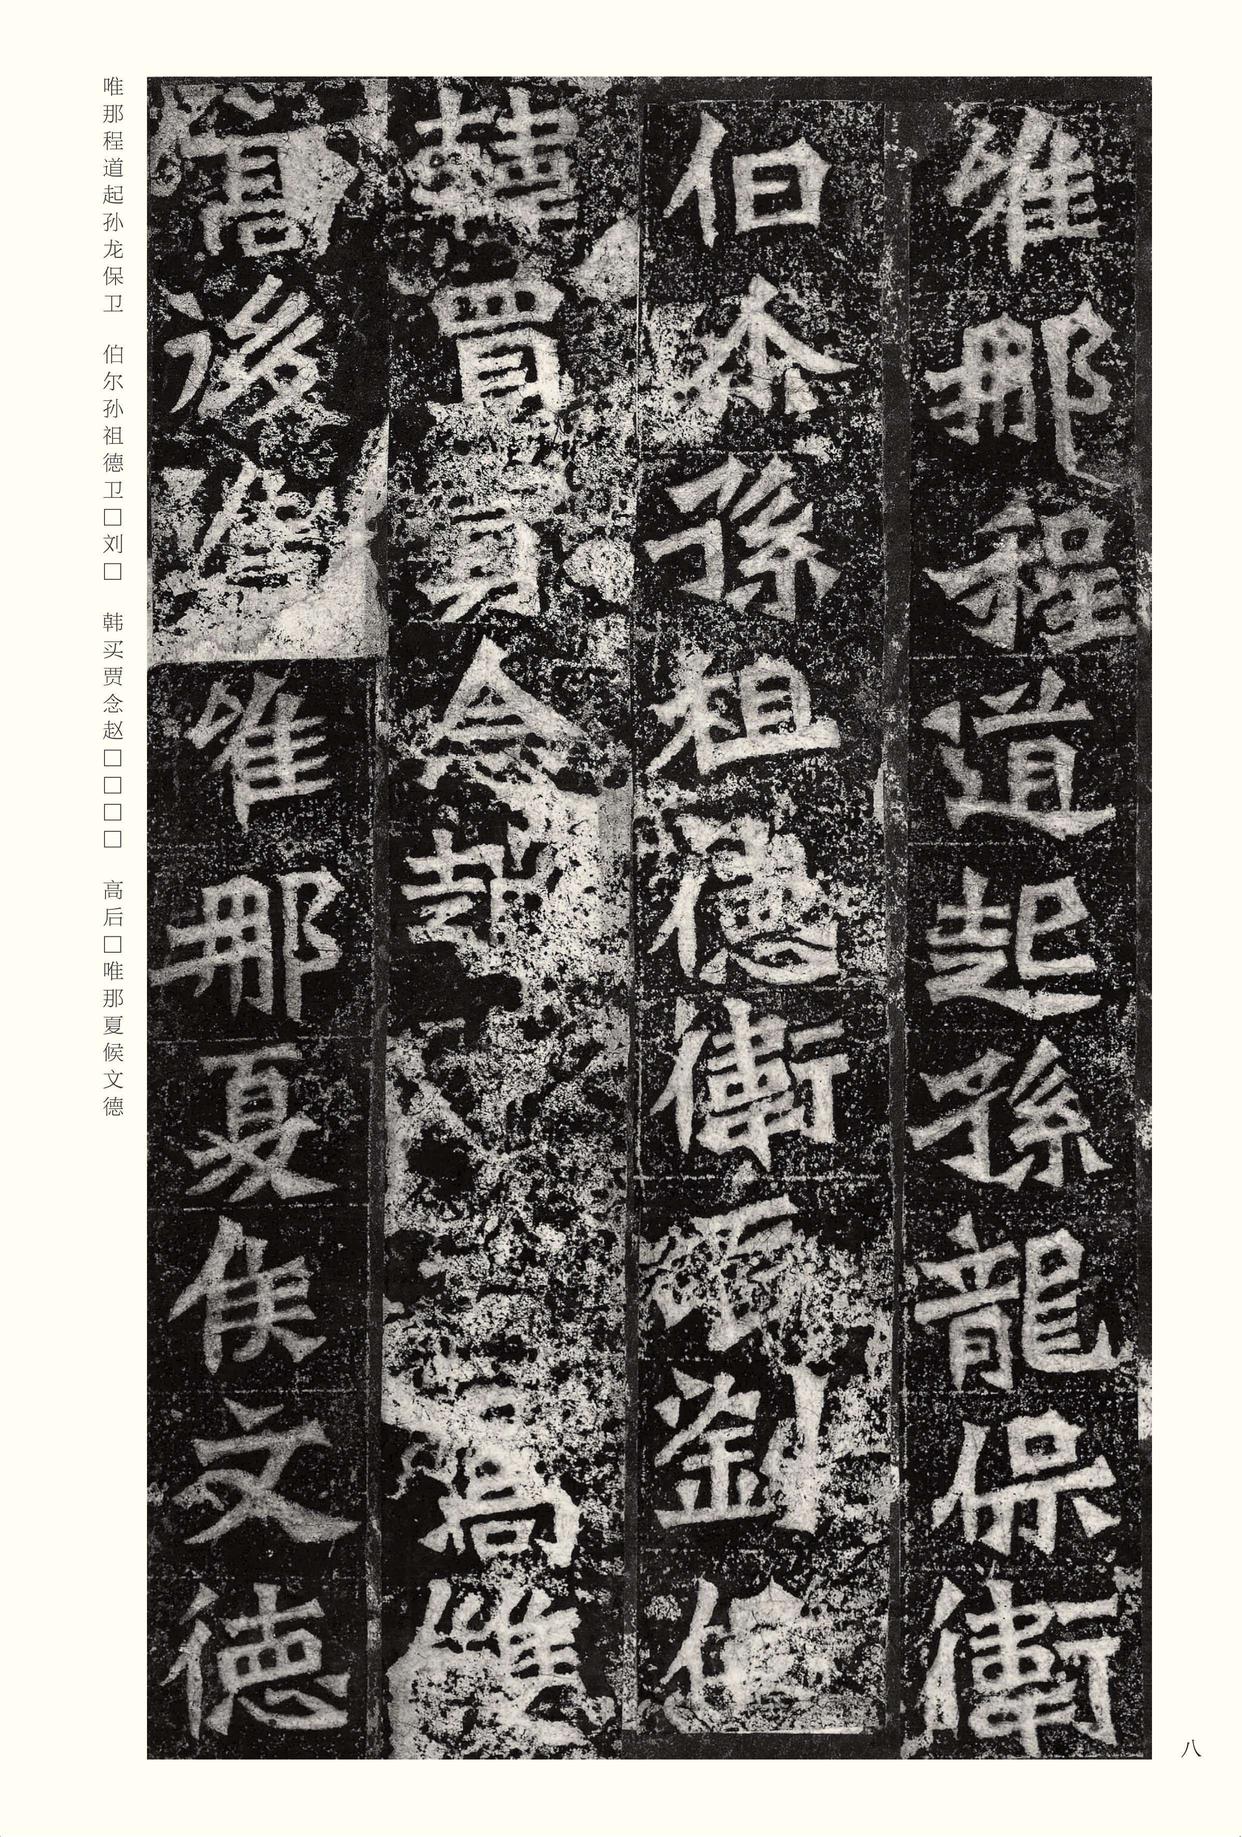 唯那程道起孫龍保衛
伯尒孫祖德衛劉
韓買賈念趙
高後唯那夏侯文德
唯那程道起孙龙保卫 伯尔孙祖德卫□刘□ 韩买贾念赵□□□□ 高后□唯那夏候文德
八